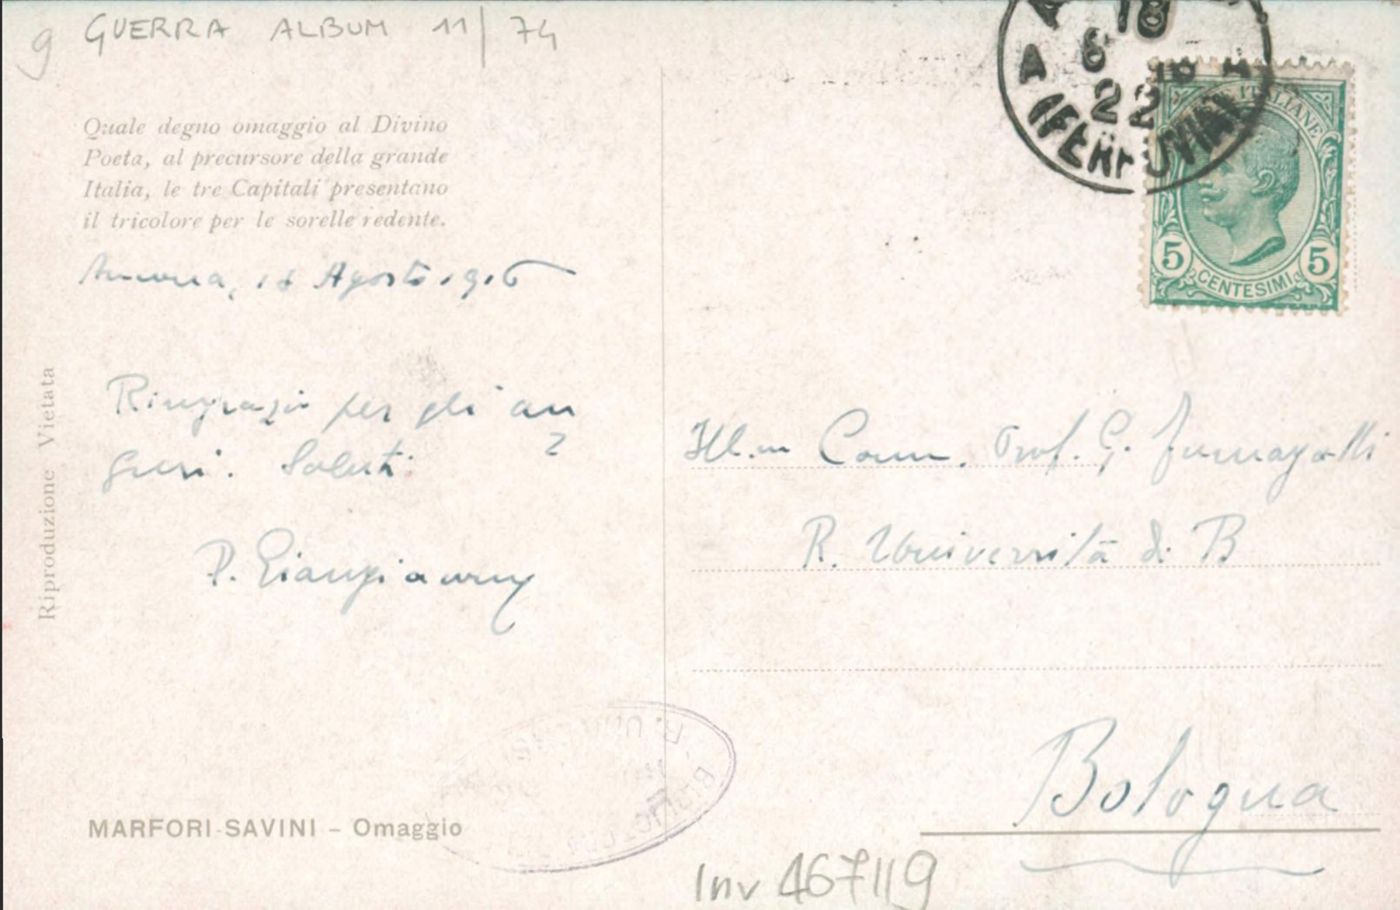 g GUERRA ALBUM 11/74
Quale degno omaggio al Divino
Poeta, al precursore della grande
Italia, le tre Capitali presentano
il tricolore per le sorelle redente.
Ancona, 18 Agosto 1916
Ringrazio per gli au
guri. Saluti
P. Giangiacomi
Riproduzione Vietata
MARFORI-SAVINI – Omaggio
18
8 16
22
A A
(FERROVIA)
ITALIANE
5 5
CENTESIMI
Ill.m Comm. Prof. G. Fumagalli
R. Università di B
Bologna
R. UNIVERS
Inv 467119